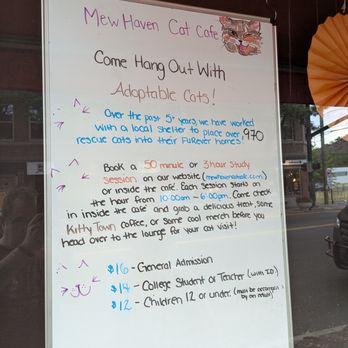 Mew Haven Cat Cafe
Come Hang Out With
Adoptable Cats!
Over the past 5+ years, we have worked
with a local shelter to place over 970
rescue cats into their FURever homes!
Book a 50 minute or 3 hour study
session on our website (mewhavencatcafe.com)
or inside the café. Each session starts on
the hour from 10:00am - 6:00pm. Come check
in inside the café and grab a delicious treat, some
Kitty Town coffee, or some cool merch before you
head over to the lounge for your cat visit!
$16 - General Admission
$14 - College Student or Teacher (with ID)
$12 - Children 12 or under (must be accompanied
by an adult)